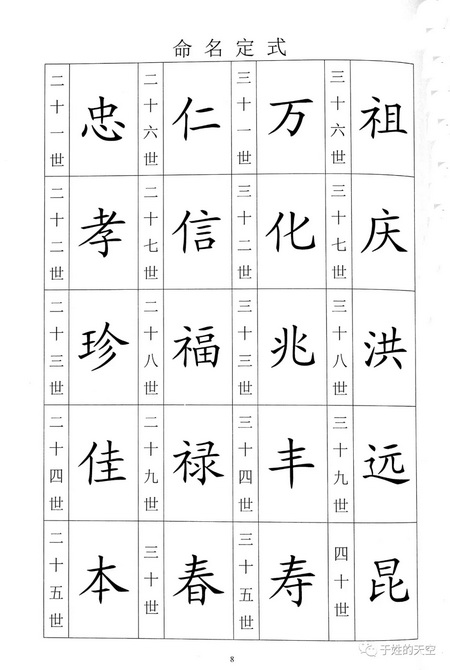 命名定式
二十一世 忠 二十六世 仁 三十一世 万 三十六世 祖
二十二世 孝 二十七世 信 三十二世 化 三十七世 庆
二十三世 珍 二十八世 福 三十三世 兆 三十八世 洪
二十四世 佳 二十九世 禄 三十四世 丰 三十九世 远
二十五世 本 三十世 春 三十五世 寿 四十世 昆
于姓的天空
8